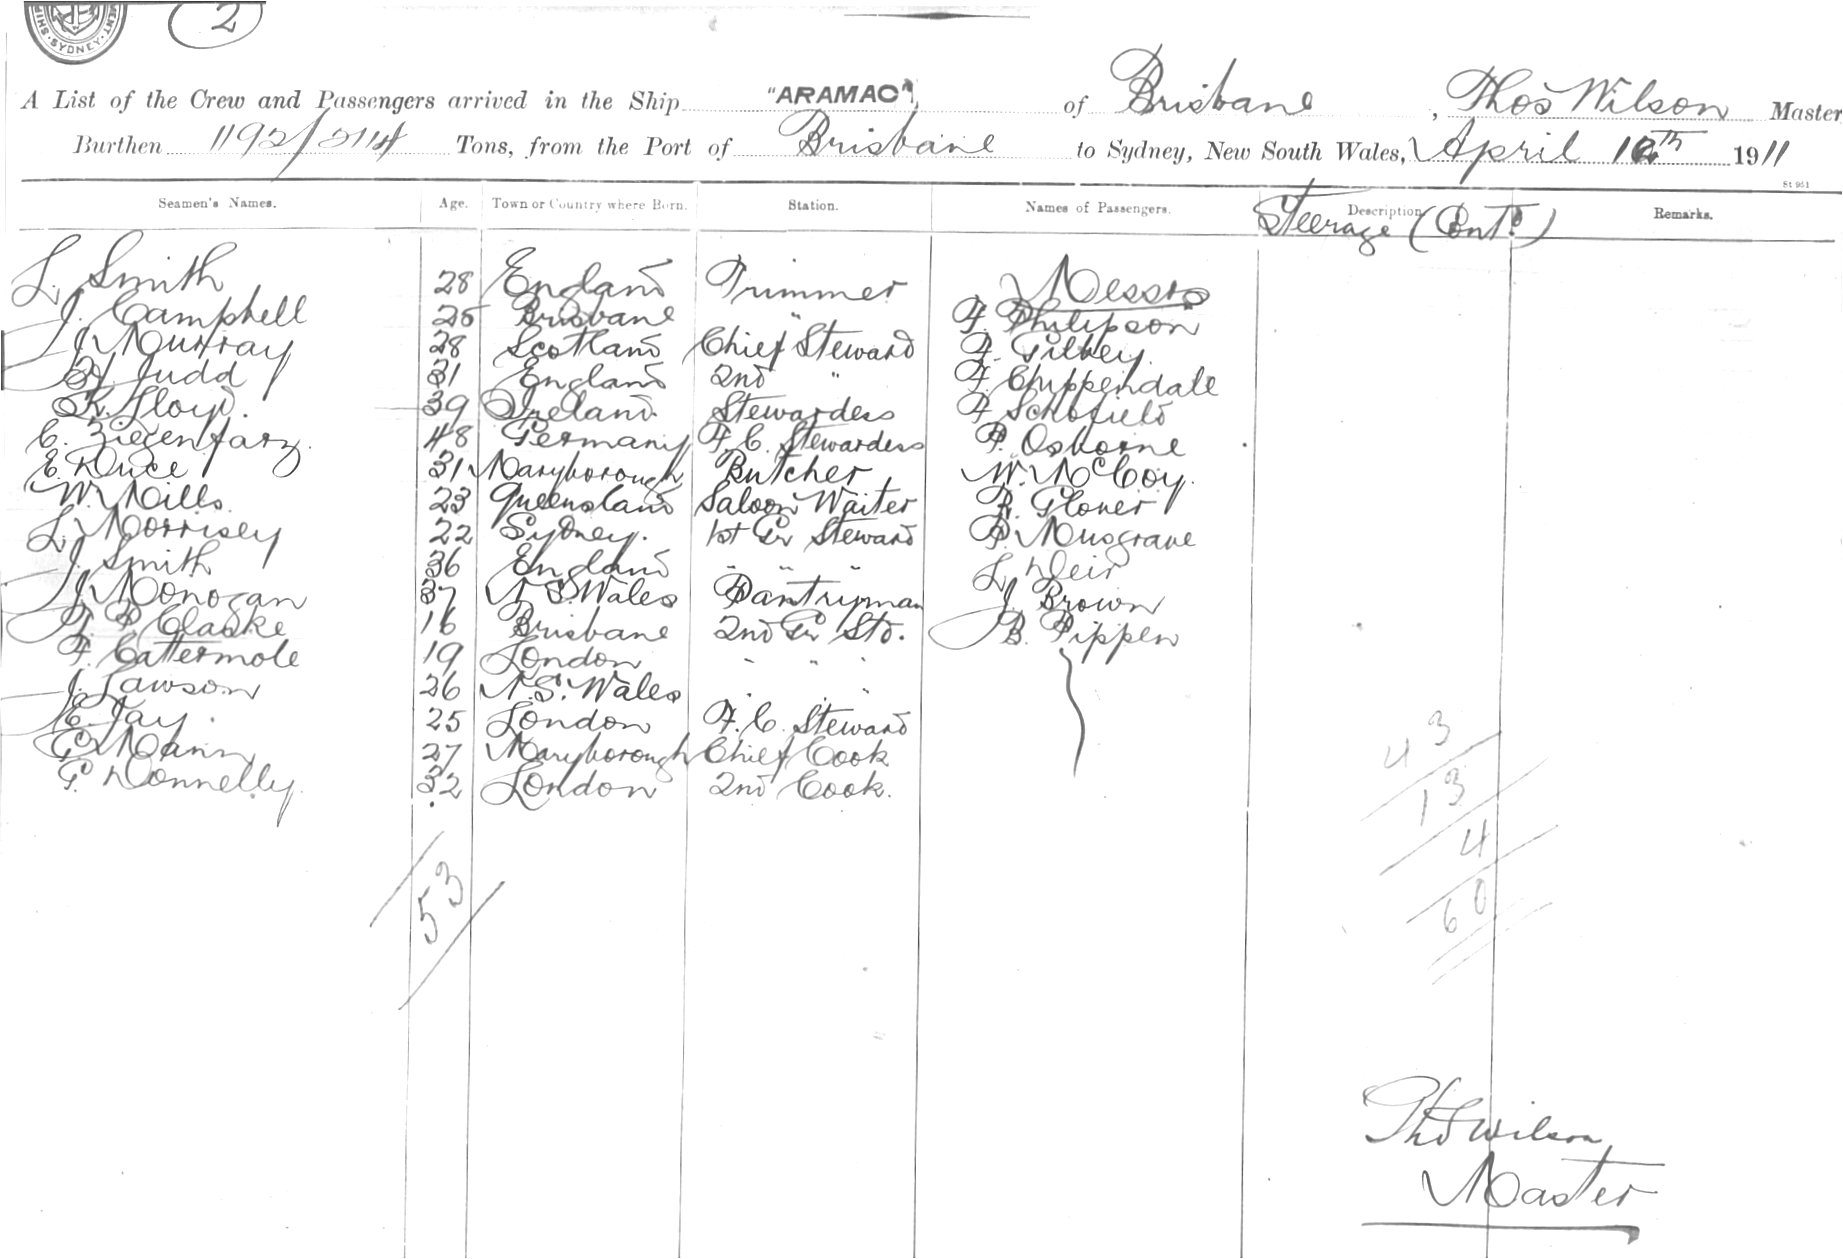 SYDNEY
2
A List of the Crew and Passengers arrived in the Ship "ARAMAC", of Brisbane, Thos Wilson Master
Burthen 1192/2114 Tons, from the Port of Brisbane to Sydney, New South Wales, April 16th 1911
St 951
Seamen's Names. Age. Town or Country where Born. Station. Names of Passengers. Description Remarks.
Steerage (Contd)
L. Smith 28 England Trimmer Messrs
J. Campbell 25 Brisbane " F. Philipson
J. Murray 28 Scotland Chief Steward F. Gilbey.
H. Judd 31 England 2nd " F. Chippendale
K. Lloyd. 39 Ireland. Stewardess F. Schofield
C. Ziegenfarz. 48 Germany F. C. Stewardess P. Osborne
E. Duce 31 Maryborough Butcher W. McCoy.
W. Mills. 23 Queensland Saloon Waiter R. Glover
L. Morrisey 22 Sydney. 1st Gr Steward P. Musgrave
J. Smith 36 England " " " L. Weir
J. Monogan 37 N. S. Wales Pantryman J. Brown
J. P. Clarke 16 Brisbane 2nd Gr Std. B. Pippen
F. Cattermole 19 London " " "
J. Lawson 26 N. S. Wales " "
E. Jay. 25 London F. C. Steward
G. Mann 27 Maryborough Chief Cook
G. Donnelly. 32 London 2nd Cook.
43
13
4
60
53
Thos Wilson
Master